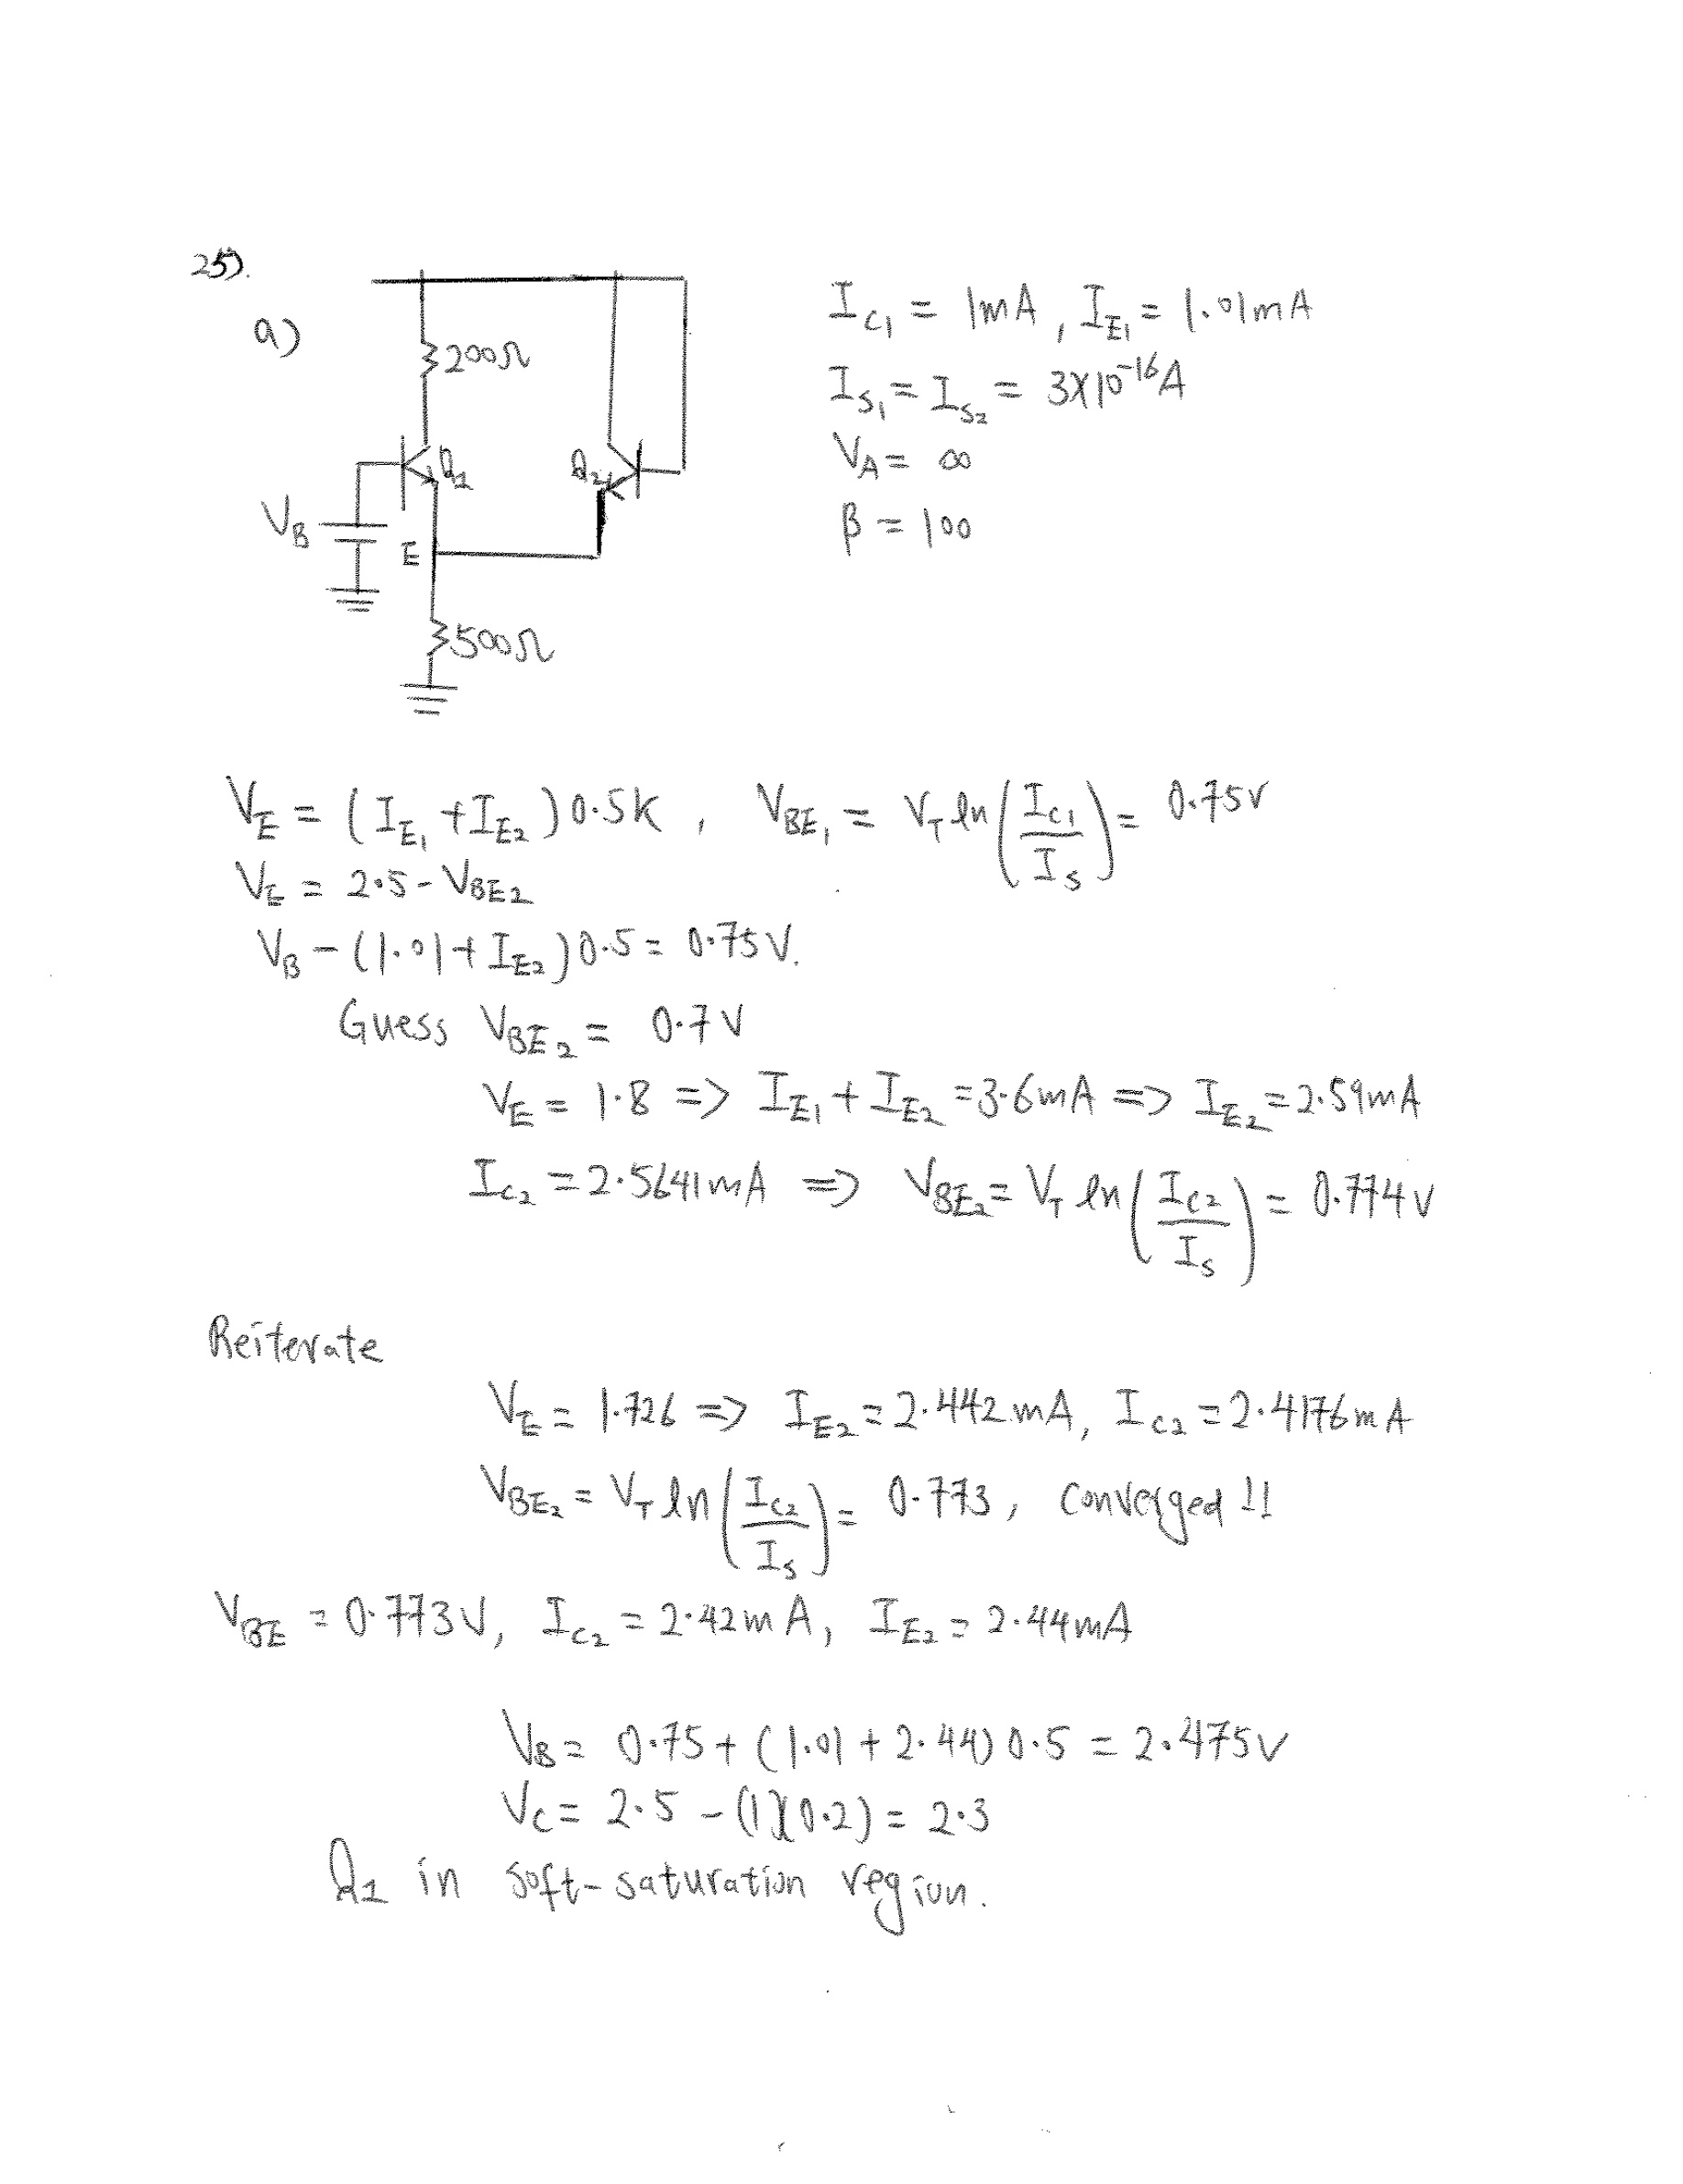 25).
a)
200Ω
Q1
Q2
V_B
E
500Ω
I_C1 = 1mA, I_E1 = 1.01mA
I_S1 = I_S2 = 3X10^-16 A
V_A = ∞
β = 100
V_E = (I_E1 + I_E2) 0.5k, V_BE1 = V_T ln(I_C1/I_S) = 0.75V
V_E = 2.5 - V_BE2
V_B - (1.01 + I_E2) 0.5 = 0.75V.
Guess V_BE2 = 0.7V
V_E = 1.8 => I_E1 + I_E2 = 3.6mA => I_E2 = 2.59mA
I_C2 = 2.5641mA => V_BE2 = V_T ln(I_C2/I_S) = 0.774V
Reiterate
V_E = 1.726 => I_E2 = 2.442mA, I_C2 = 2.4176mA
V_BE2 = V_T ln(I_C2/I_S) = 0.773, Converged !!
V_BE = 0.773V, I_C2 = 2.42mA, I_E2 = 2.44mA
V_B = 0.75 + (1.01 + 2.44) 0.5 = 2.475V
V_C = 2.5 - (1)(0.2) = 2.3
Q1 in soft-saturation region.